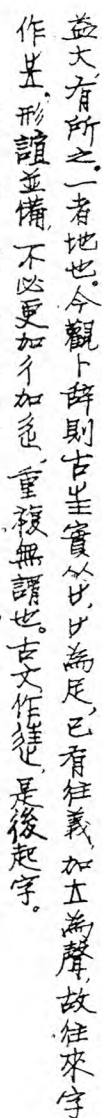 益大,有所之。一者地也。今觀卜辭則古𡉚實从㞢,㞢為足,已有往義,加土為聲,故往來字
作𡉚。形誼並備,不必更加彳加辵,重複無謂也。古文作𨓹,是後起字。